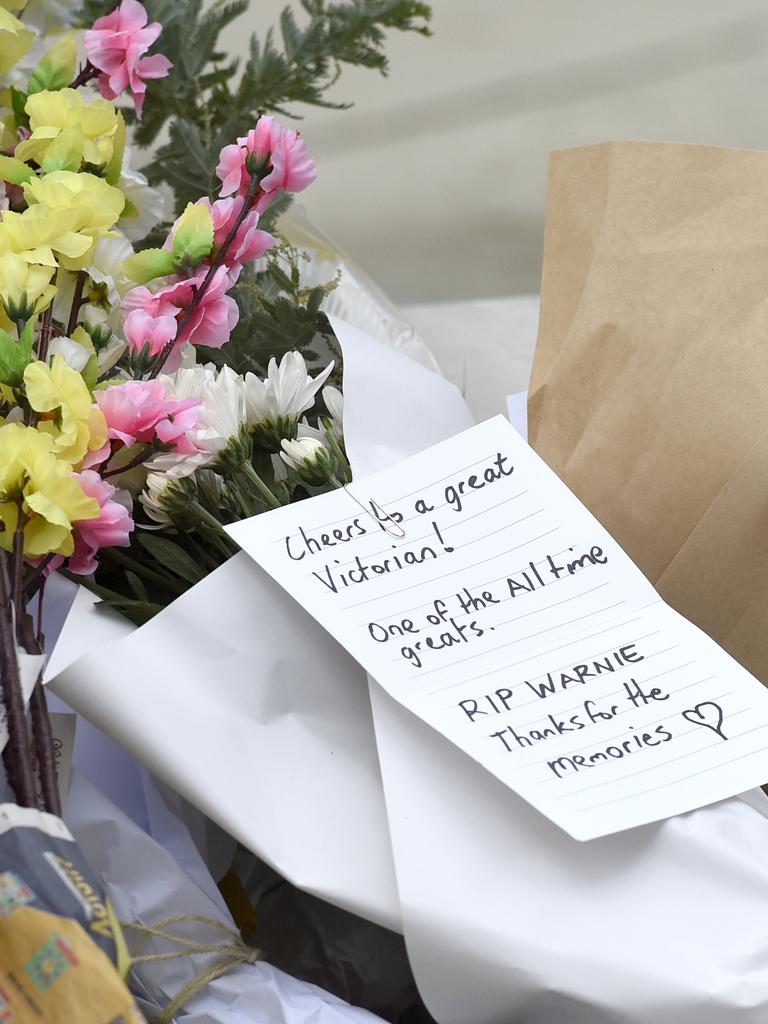 Cheers to a great
Victorian!
One of the All time
greats.
RIP WARNIE
Thanks for the
memories ♡